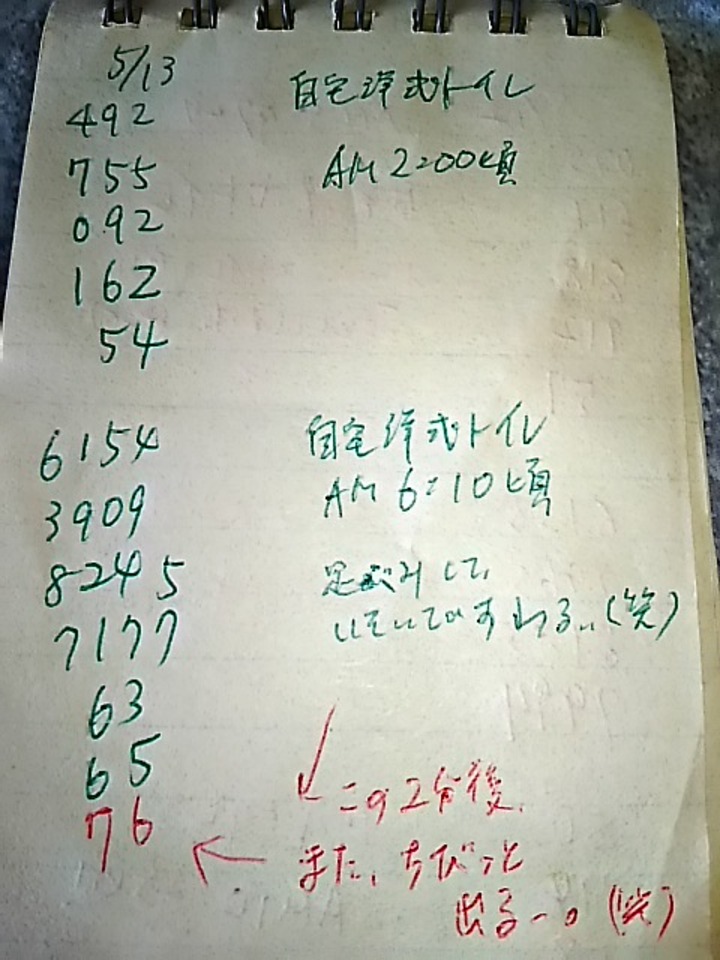 5/13
自宅洋式トイレ
492
AM 2:00頃
755
092
162
54
自宅洋式トイレ
6154
AM 6:10頃
3909
足ぶみして、
8245
いそいですわる..(笑)
7177
63
65
この2分後、
76
また、ちびっと
出るー。(笑)